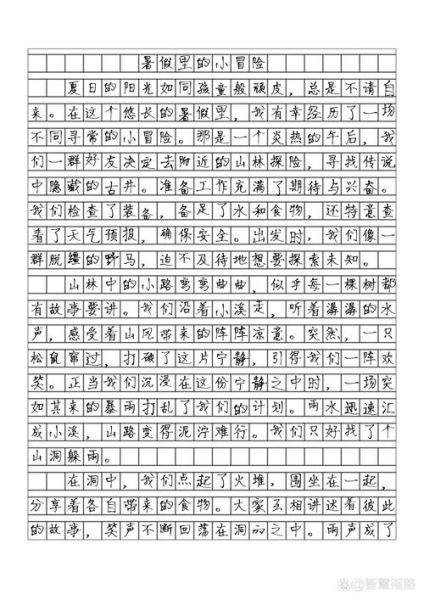 暑假里的小冒险
夏日的阳光如同孩童般顽皮，总是不请自
来。在这个悠长的暑假里，我有幸经历了一场
不同寻常的小冒险。那是一个炎热的午后，我
们一群好友决定去附近的山林探险，寻找传说
中隐藏的古井。准备工作充满了期待与兴奋。
我们检查了装备，备足了水和食物，还特意查
看了天气预报，确保安全。出发时，我们像一
群脱缰的野马，迫不及待地想要探索未知。
山林中的小路弯弯曲曲，似乎每一棵树都
有故事要讲。我们沿着小溪走，听着潺潺的水
声，感受着山风带来的阵阵凉意。突然，一只
松鼠窜过，打破了这片宁静，引得我们一阵欢
笑。正当我们沉浸在这份宁静之中时，一场突
如其来的暴雨打乱了我们的计划。雨水迅速汇
成小溪，山路变得泥泞难行。我们只好找了个
山洞躲雨。
在洞中，我们点起了火堆，围坐在一起，
分享着各自带来的食物。大家互相讲述着彼此
的故事，笑声不断回荡在洞穴之中。雨声成了